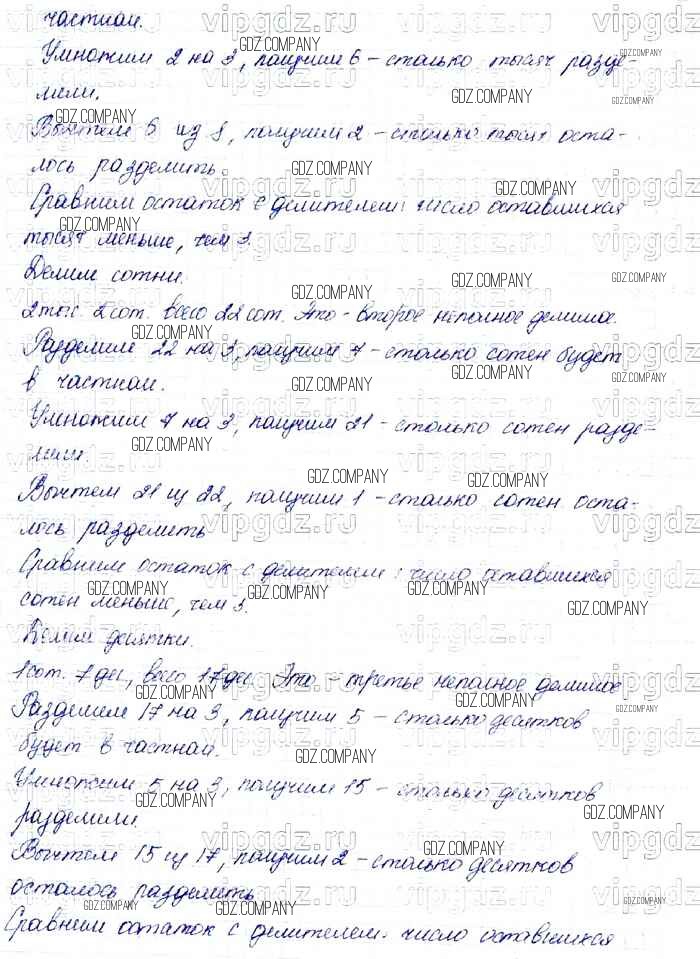 частном.
Умножим 2 на 3, получим 6 – столько тысяч разде-
лили.
Вычтем 6 из 8, получим 2 – столько тысяч оста-
лось разделить.
Сравним остаток с делителем: число оставшихся
тысяч меньше, чем 3.
Делим сотни.
2 тыс. 2 сот. всего 22 сот. Это – второе неполное делимое.
Разделим 22 на 3, получим 7 – столько сотен будет
в частном.
Умножим 7 на 3, получим 21 – столько сотен разде-
лили.
Вычтем 21 из 22, получим 1 – столько сотен оста-
лось разделить
Сравним остаток с делителем: число оставшихся
сотен меньше, чем 3.
Делим десятки.
1 сот. 7 дес, всего 17 дес. Это – третье неполное делимое
Разделим 17 на 3, получим 5 – столько десятков
будет в частном.
Умножим 5 на 3, получим 15 – столько десятков
разделили.
Вычтем 15 из 17, получим 2 – столько десятков
осталось разделить
Сравним остаток с делителем. число оставшихся
GDZ.COMPANY
vipgdz.ru